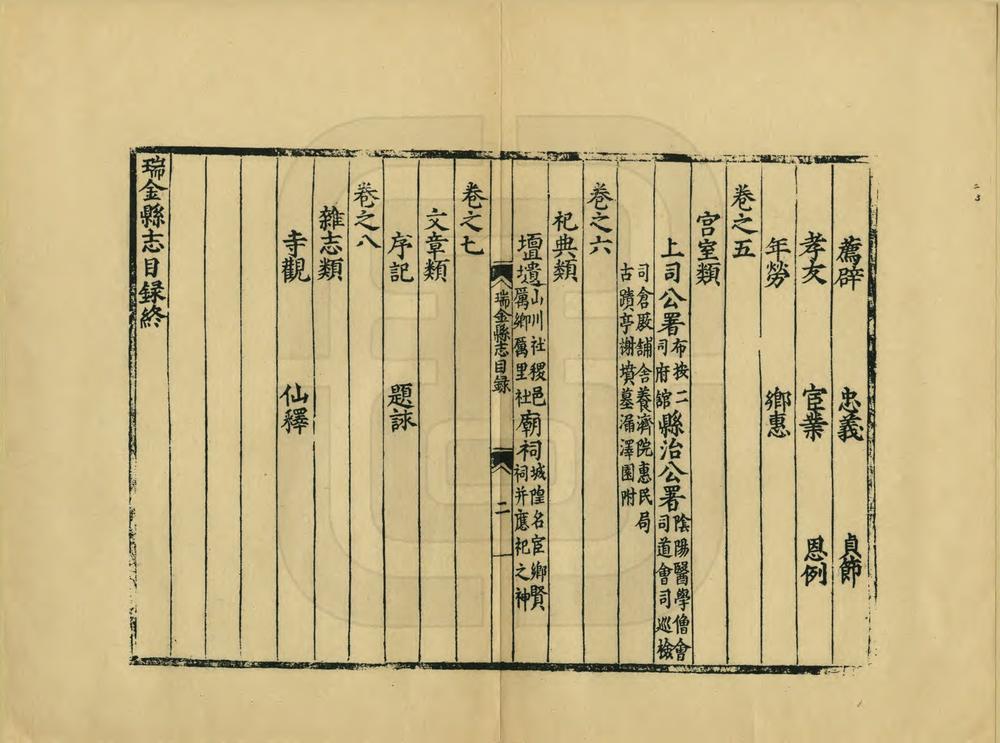 薦辟 忠義 貞節
孝友 宦業 恩例
年勞 鄉惠
卷之五
宮室類
上司公署布按二司府館縣治公署陰陽醫學僧會司道會司巡檢
司倉厫舖舍養濟院惠民局
古蹟亭榭墳墓漏澤園附
卷之六
祀典類
壇壝山川社稷邑厲鄉厲里社廟祠城隍名宦鄉賢祠并應祀之神
瑞金縣志目録 二
卷之七
文章類
序記 題詠
卷之八
雜志類
寺觀 仙釋
瑞金縣志目録終